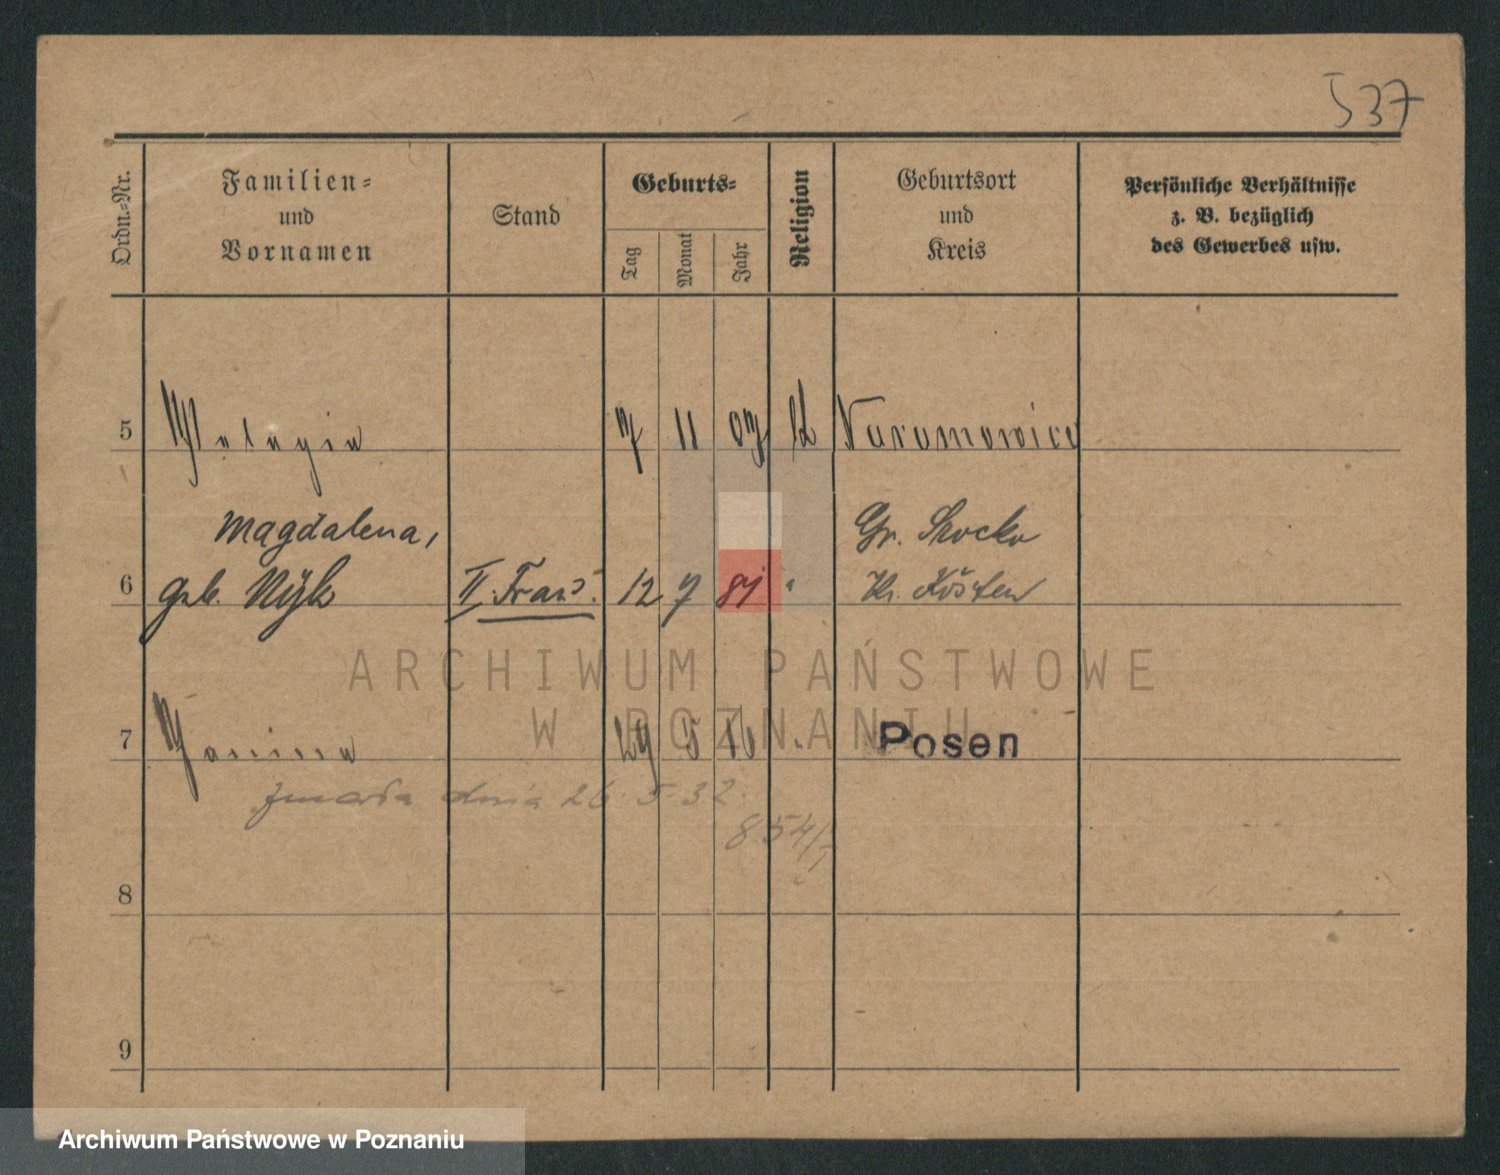 537
Ordn.-Nr.
Familien-
und
Vornamen
Stand
Geburts-
Tag
Monat
Jahr
Religion
Geburtsort
und
Kreis
Persönliche Verhältnisse
z. B. bezüglich
des Gewerbes usw.
5 Pelagia 7 11 07 k Naramowice
Magdalena, Gr.
6 geb. Nyk II. Frau 12 7 81 " Kr. Kosten
7 Janina 29 5 10 " Posen
zmarła dnia 26. 5. 32.
854/
8
9
ARCHIWUM PAŃSTWOWE
W POZNANIU
Archiwum Państwowe w Poznaniu